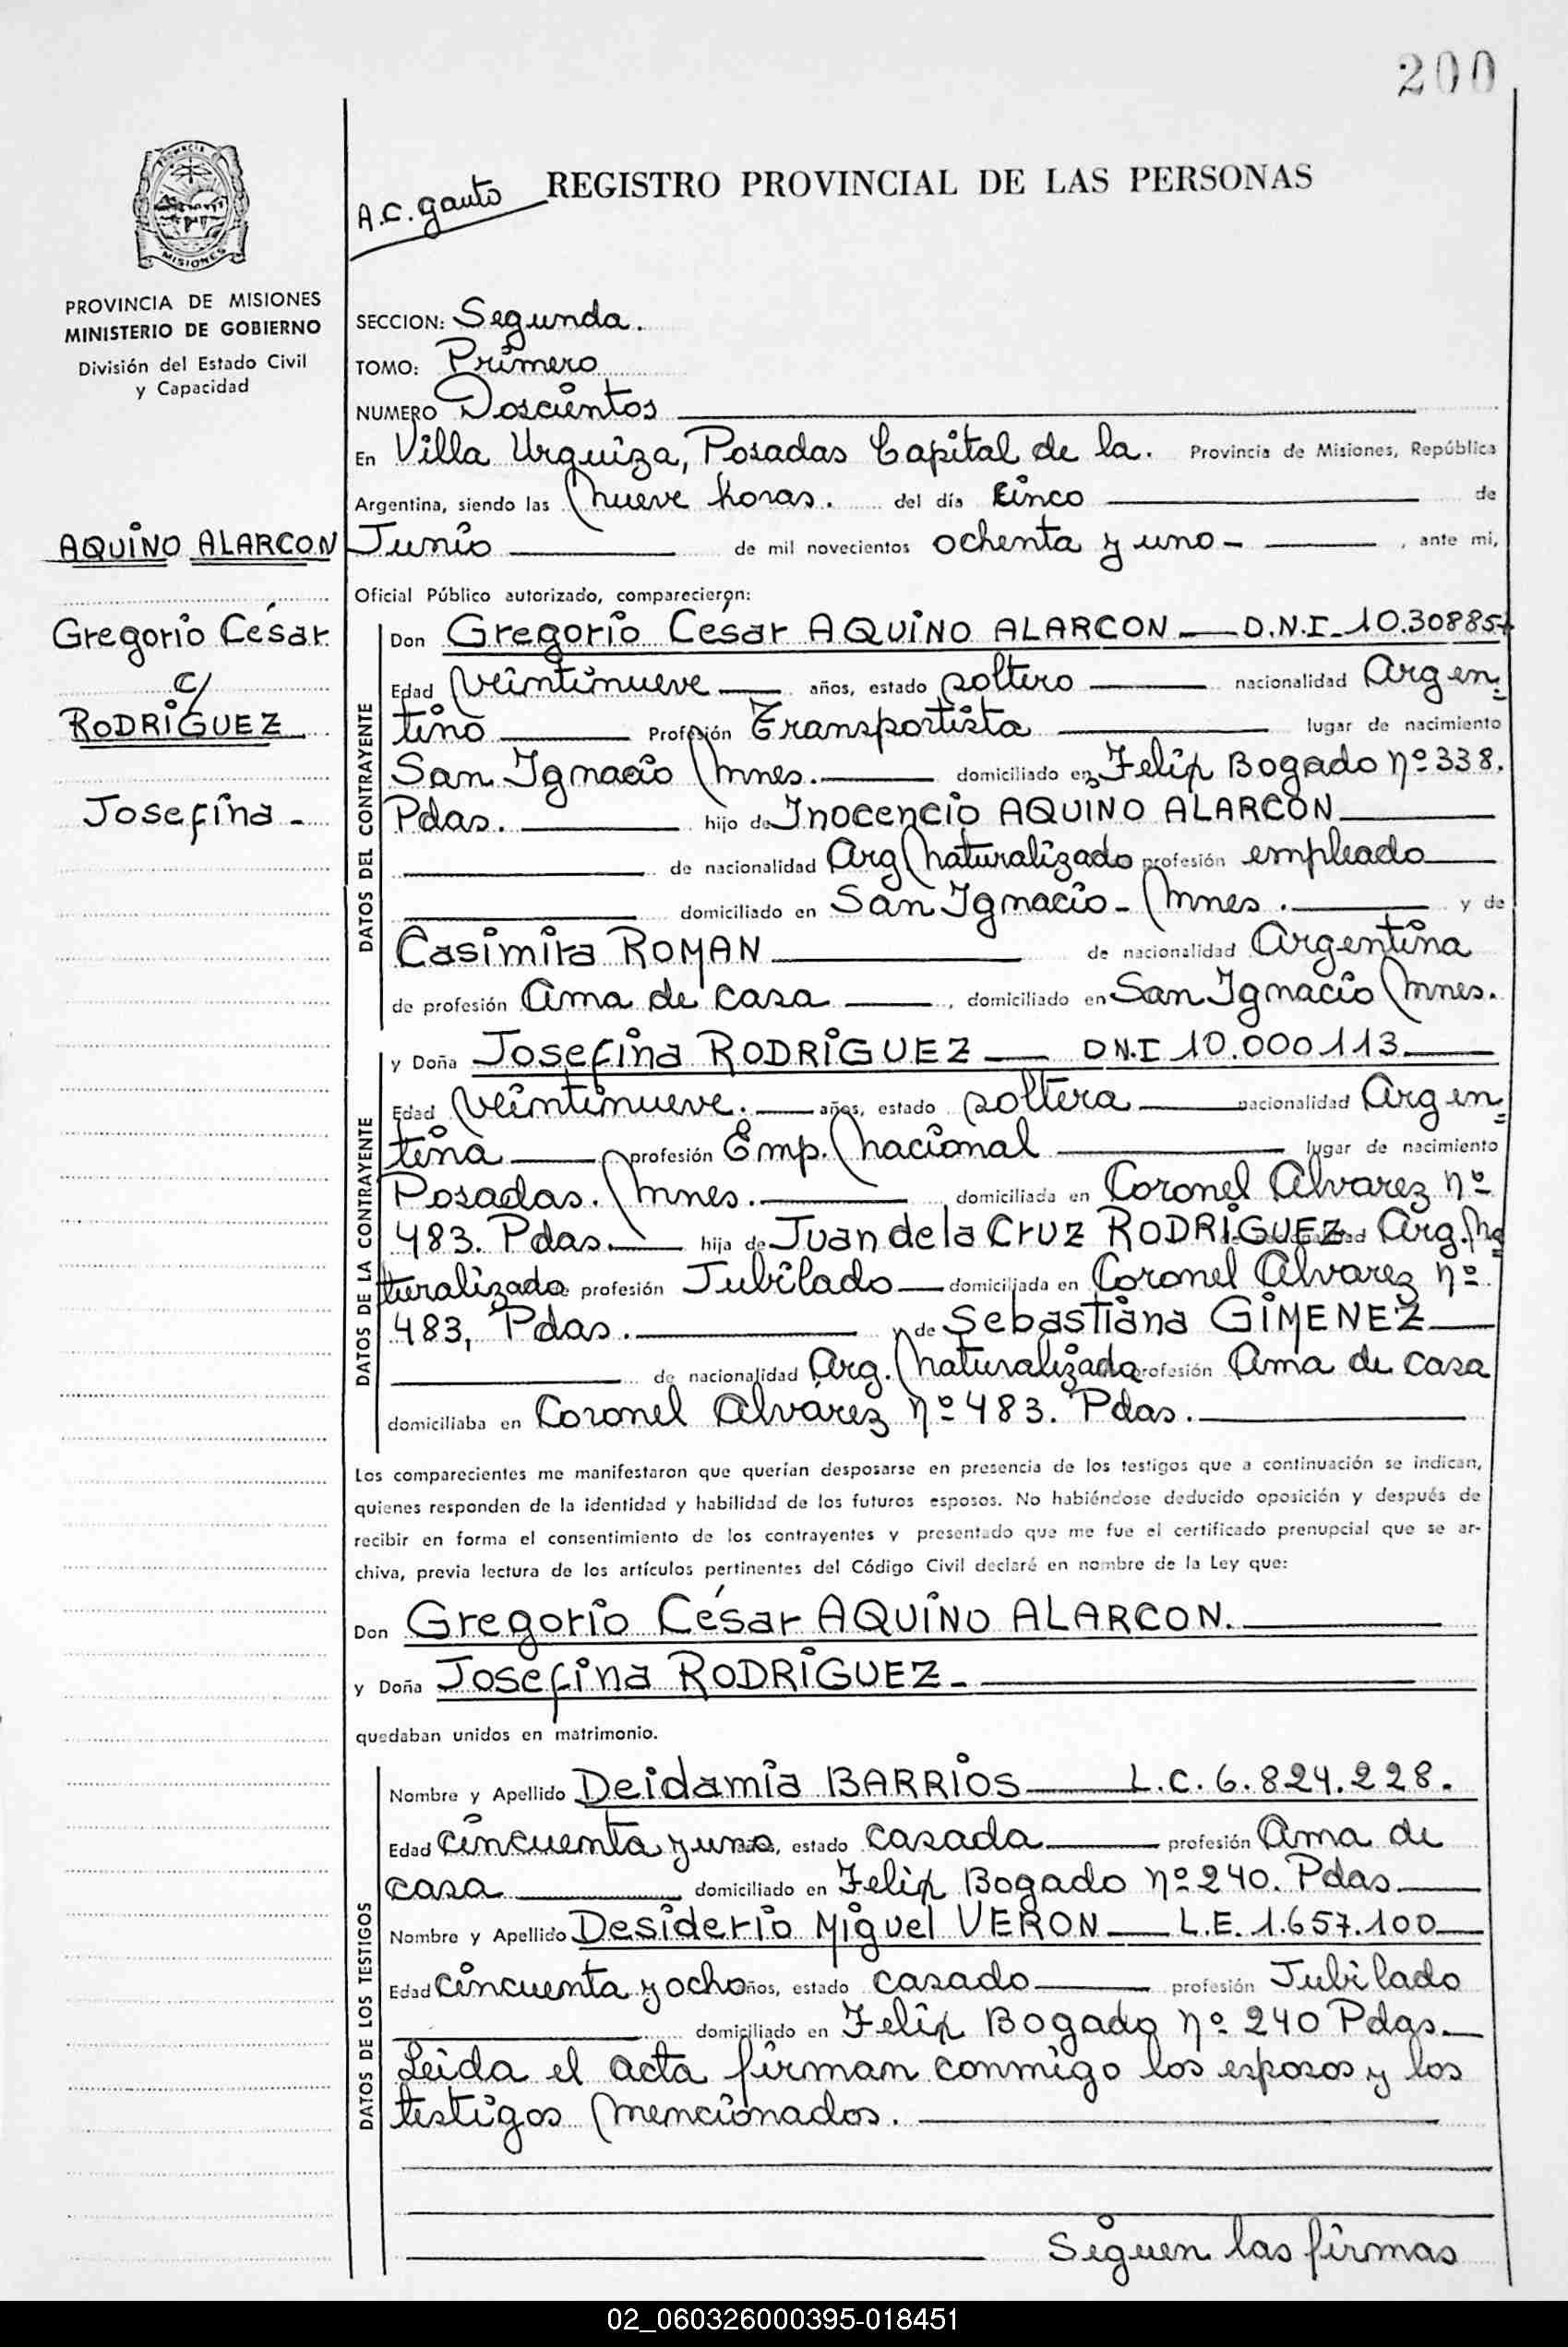 200
REGISTRO PROVINCIAL DE LAS PERSONAS
A.C. Gauto
PROVINCIA
MISIONES
PROVINCIA DE MISIONES
MINISTERIO DE GOBIERNO
División del Estado Civil
y Capacidad
AQUINO ALARCON
Gregorio César
c/
RODRIGUEZ
Josefina -
SECCION: Segunda.
TOMO: Primero
NUMERO Doscientos
En Villa Urquiza, Posadas Capital de la. Provincia de Misiones, República
Argentina, siendo las nueve horas. del día cinco de
Junio de mil novecientos ochenta y uno - , ante mi,
Oficial Público autorizado, comparecieron:
DATOS DEL CONTRAYENTE
Don Gregorio César AQUINO ALARCON D.N.I. 10.308857
Edad veintinueve años, estado soltero nacionalidad Argen=
tino Profesión Transportista lugar de nacimiento
San Ignacio Mnes. domiciliado en Felix Bogado nº 338.
Pdas. hijo de Inocencio AQUINO ALARCON
de nacionalidad Arg naturalizado profesión empleado
domiciliado en San Ignacio - Mnes. y de
Casimira ROMAN de nacionalidad Argentina
de profesión Ama de casa , domiciliado en San Ignacio Mnes.
DATOS DE LA CONTRAYENTE
y Doña Josefina RODRIGUEZ DN.I 10.000113
Edad veintinueve. años, estado soltera nacionalidad Argen=
tina profesión Emp. nacional lugar de nacimiento
Posadas. Mnes. domiciliada en Coronel Alvarez nº
483. Pdas. hija de Juan de la Cruz RODRIGUEZ Arg. na
turalizado profesión Jubilado domiciliada en Coronel Alvarez nº
483, Pdas. y de Sebastiana GIMENEZ
de nacionalidad Arg. naturalizada profesión Ama de casa
domiciliaba en Coronel Alvarez nº 483. Pdas.
Los comparecientes me manifestaron que querían desposarse en presencia de los testigos que a continuación se indican,
quienes responden de la identidad y habilidad de los futuros esposos. No habiéndose deducido oposición y después de
recibir en forma el consentimiento de los contrayentes y presentado que me fue el certificado prenupcial que se ar-
chiva, previa lectura de los artículos pertinentes del Código Civil declaré en nombre de la Ley que:
Don Gregorio César AQUINO ALARCON.
y Doña Josefina RODRIGUEZ -
quedaban unidos en matrimonio.
DATOS DE LOS TESTIGOS
Nombre y Apellido Deidamia BARRIOS L.C. 6.824.228.
Edad cincuenta y uno años, estado casada profesión Ama de
casa domiciliado en Felix Bogado nº 240. Pdas.
Nombre y Apellido Desiderio Miguel VERON L.E. 1.657.100
Edad cincuenta y ocho años, estado casado profesión Jubilado
domiciliado en Felix Bogado nº 240 Pdas.
Leida el acta firman conmigo los esposos y los
testigos mencionados.
Siguen las firmas
02_060326000395-018451